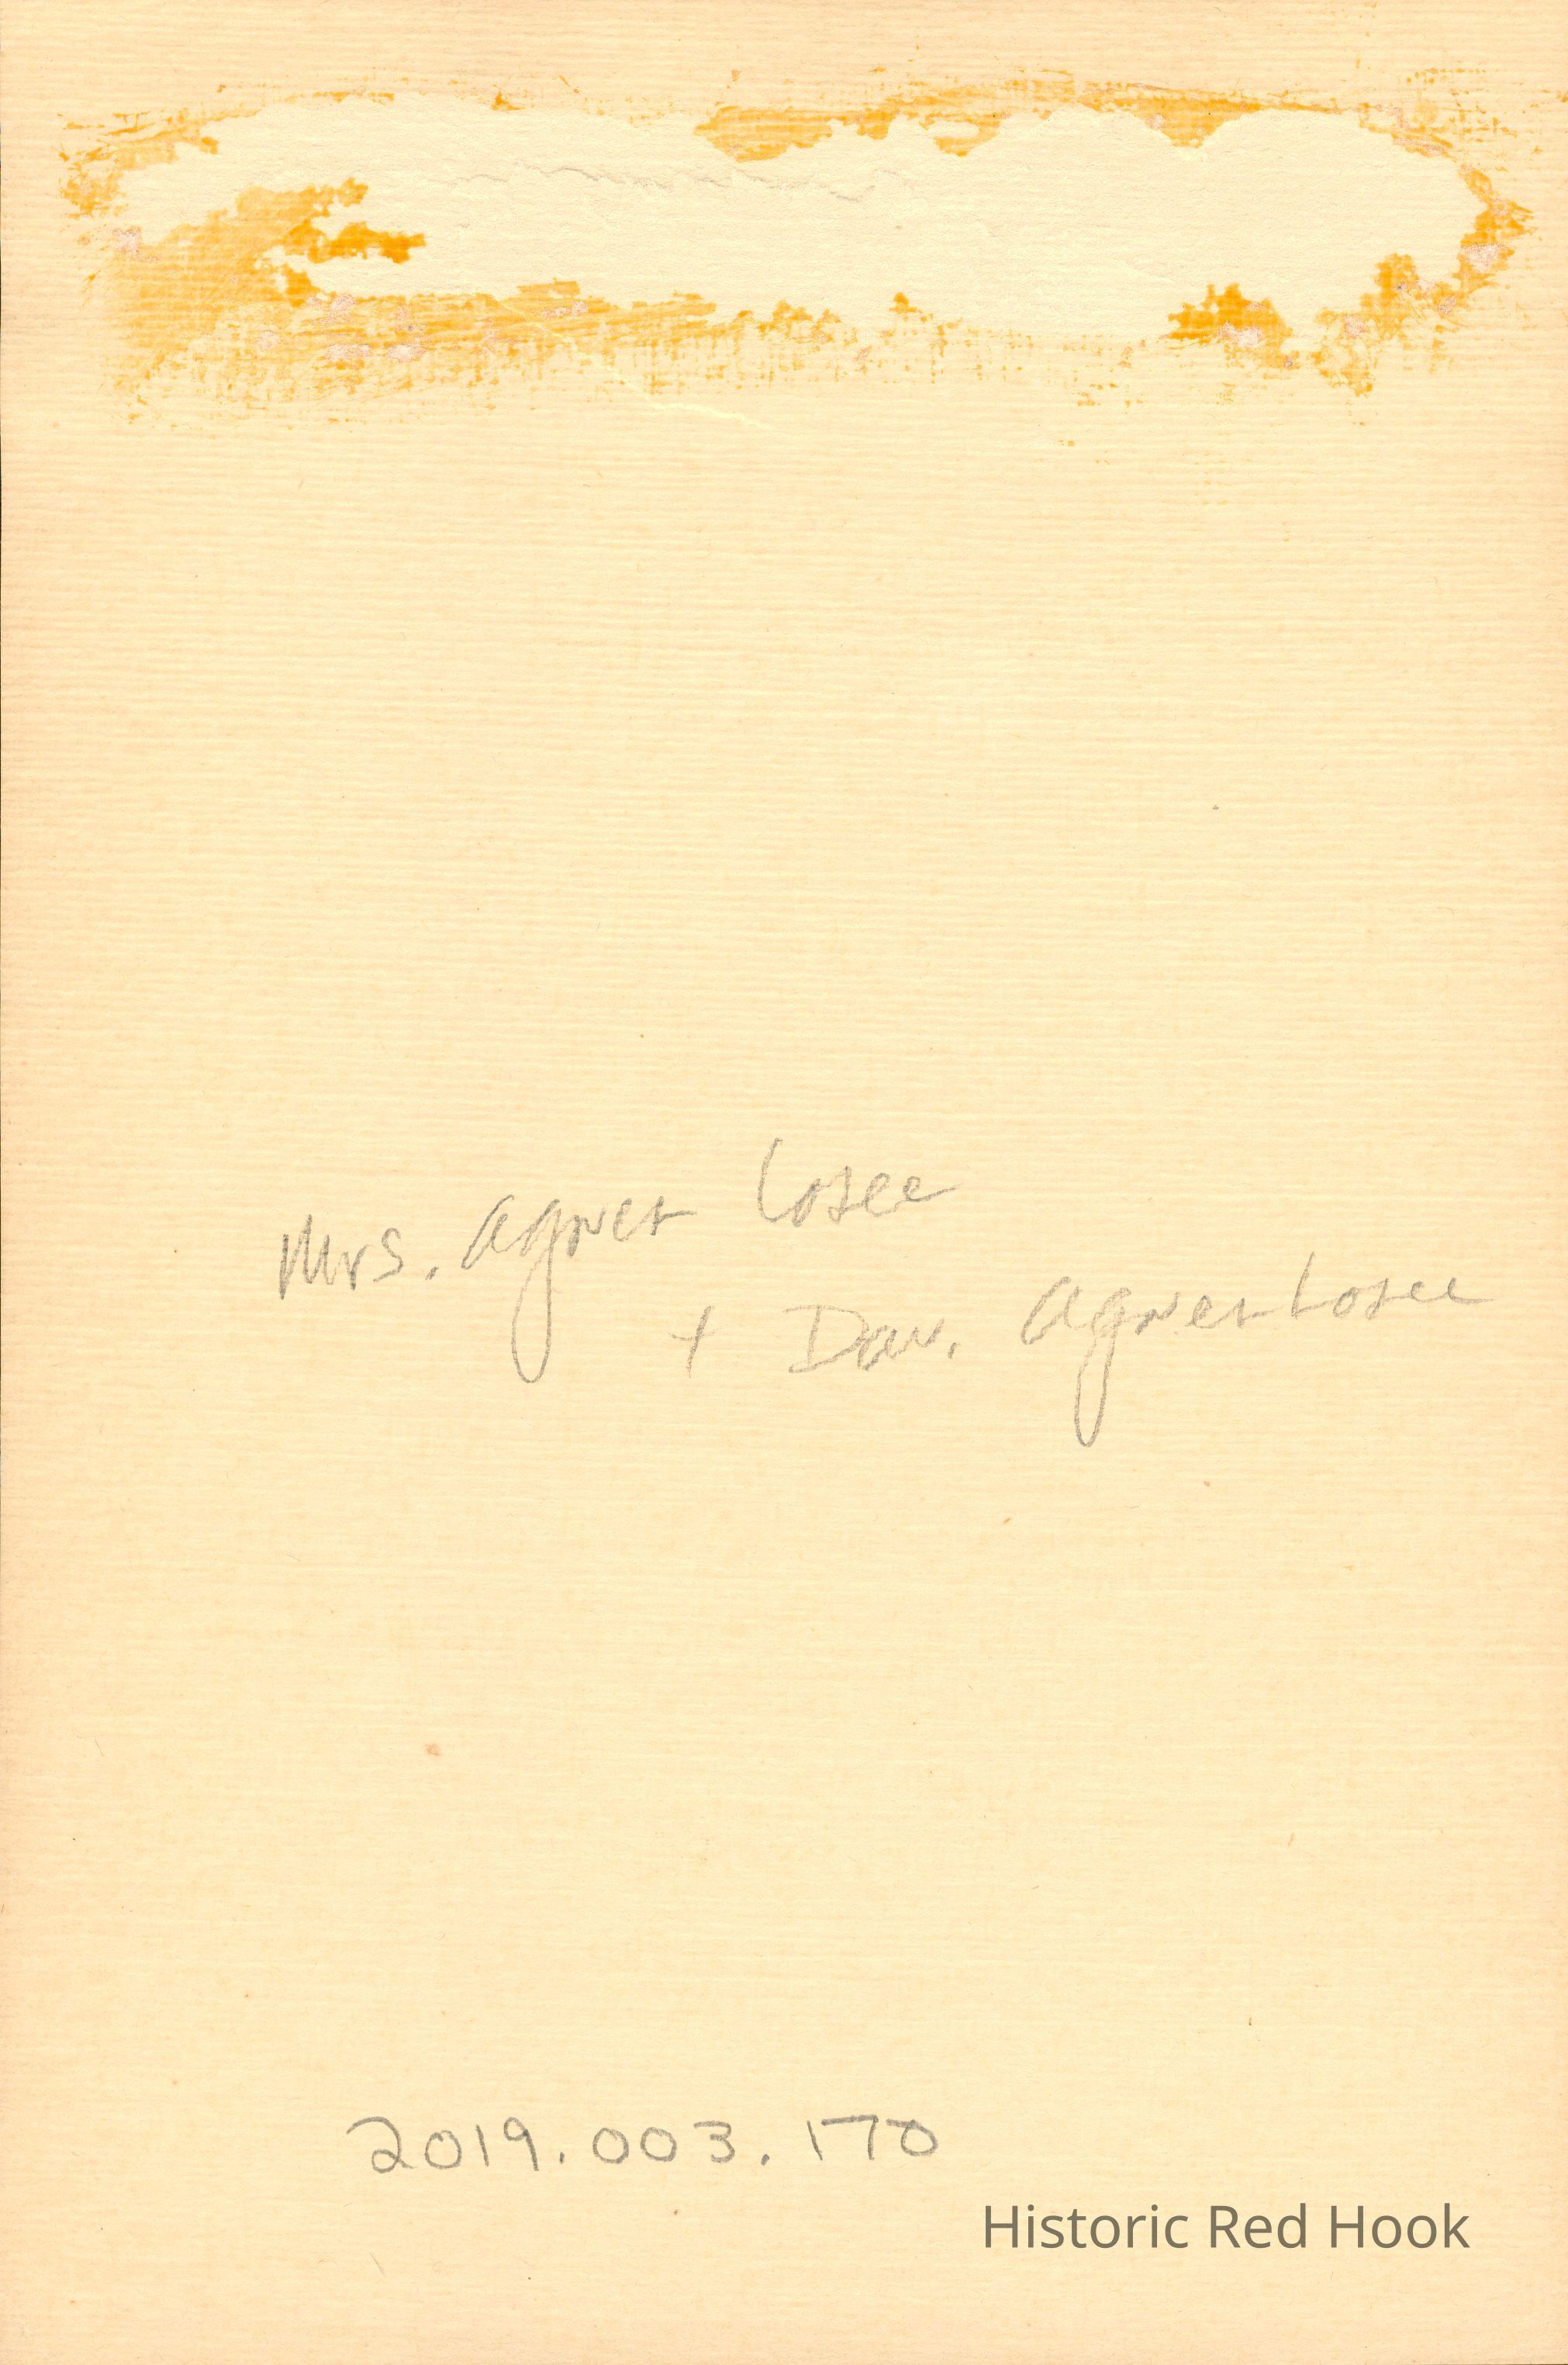 Mrs. Agnes Losee
+ Dau. Agnes Losee
2019.003.170
Historic Red Hook